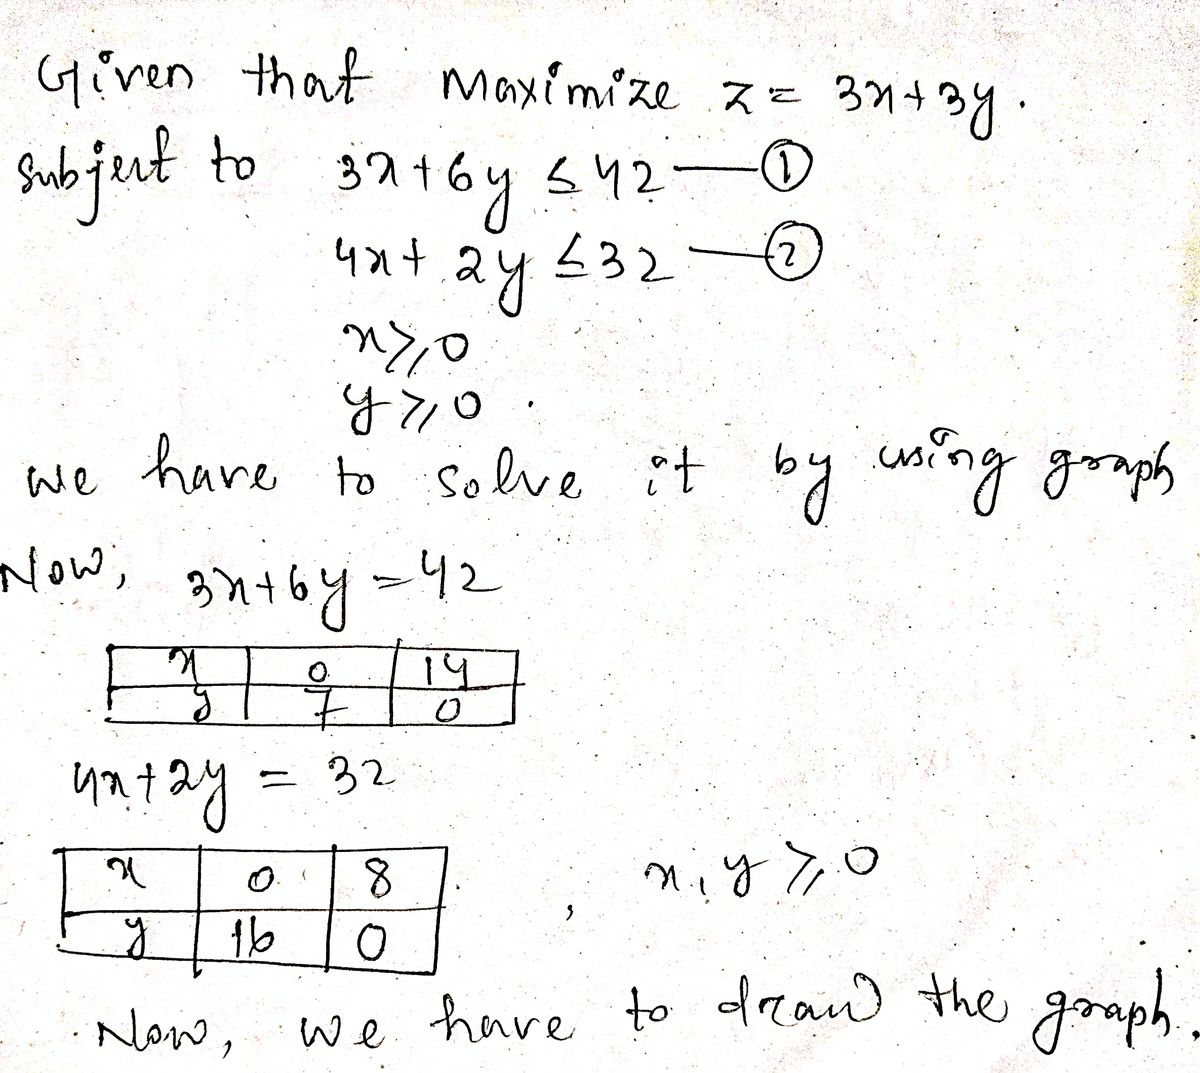 Given that Maximize z = 3x+3y.
subject to 3x+6y ≤ 42 — ①
4x+2y ≤ 32 — ②
x ≥ 0
y ≥ 0.
we have to solve it by using graph
Now, 3x+6y = 42
x 0 14
y 7 0
4x+2y = 32
x 0 8
y 16 0 , x, y ≥ 0
Now, we have to draw the graph.